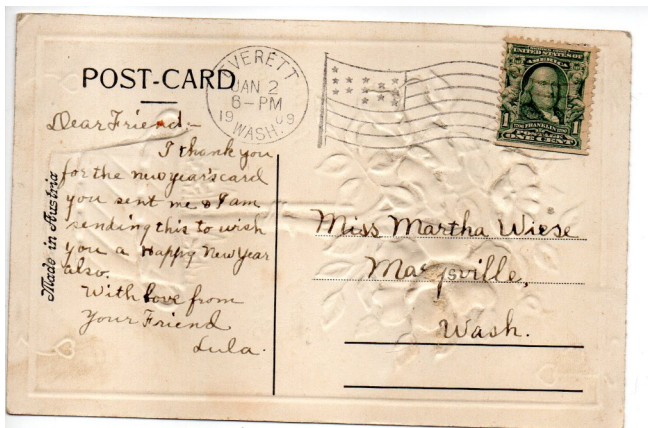 POST-CARD
EVERETT
JAN 2
6-PM
1909
WASH.
UNITED STATES OF
AMERICA
1 1
FRANKLIN
POSTAGE
ONE CENT
Made in Austria
Dear Friend-
I thank you
for the new year's card
you sent me & I am
sending this to wish
you a Happy New Year
also.
With love from
Your Friend
Lula.
Miss Martha Wiese
Marysville,
Wash.